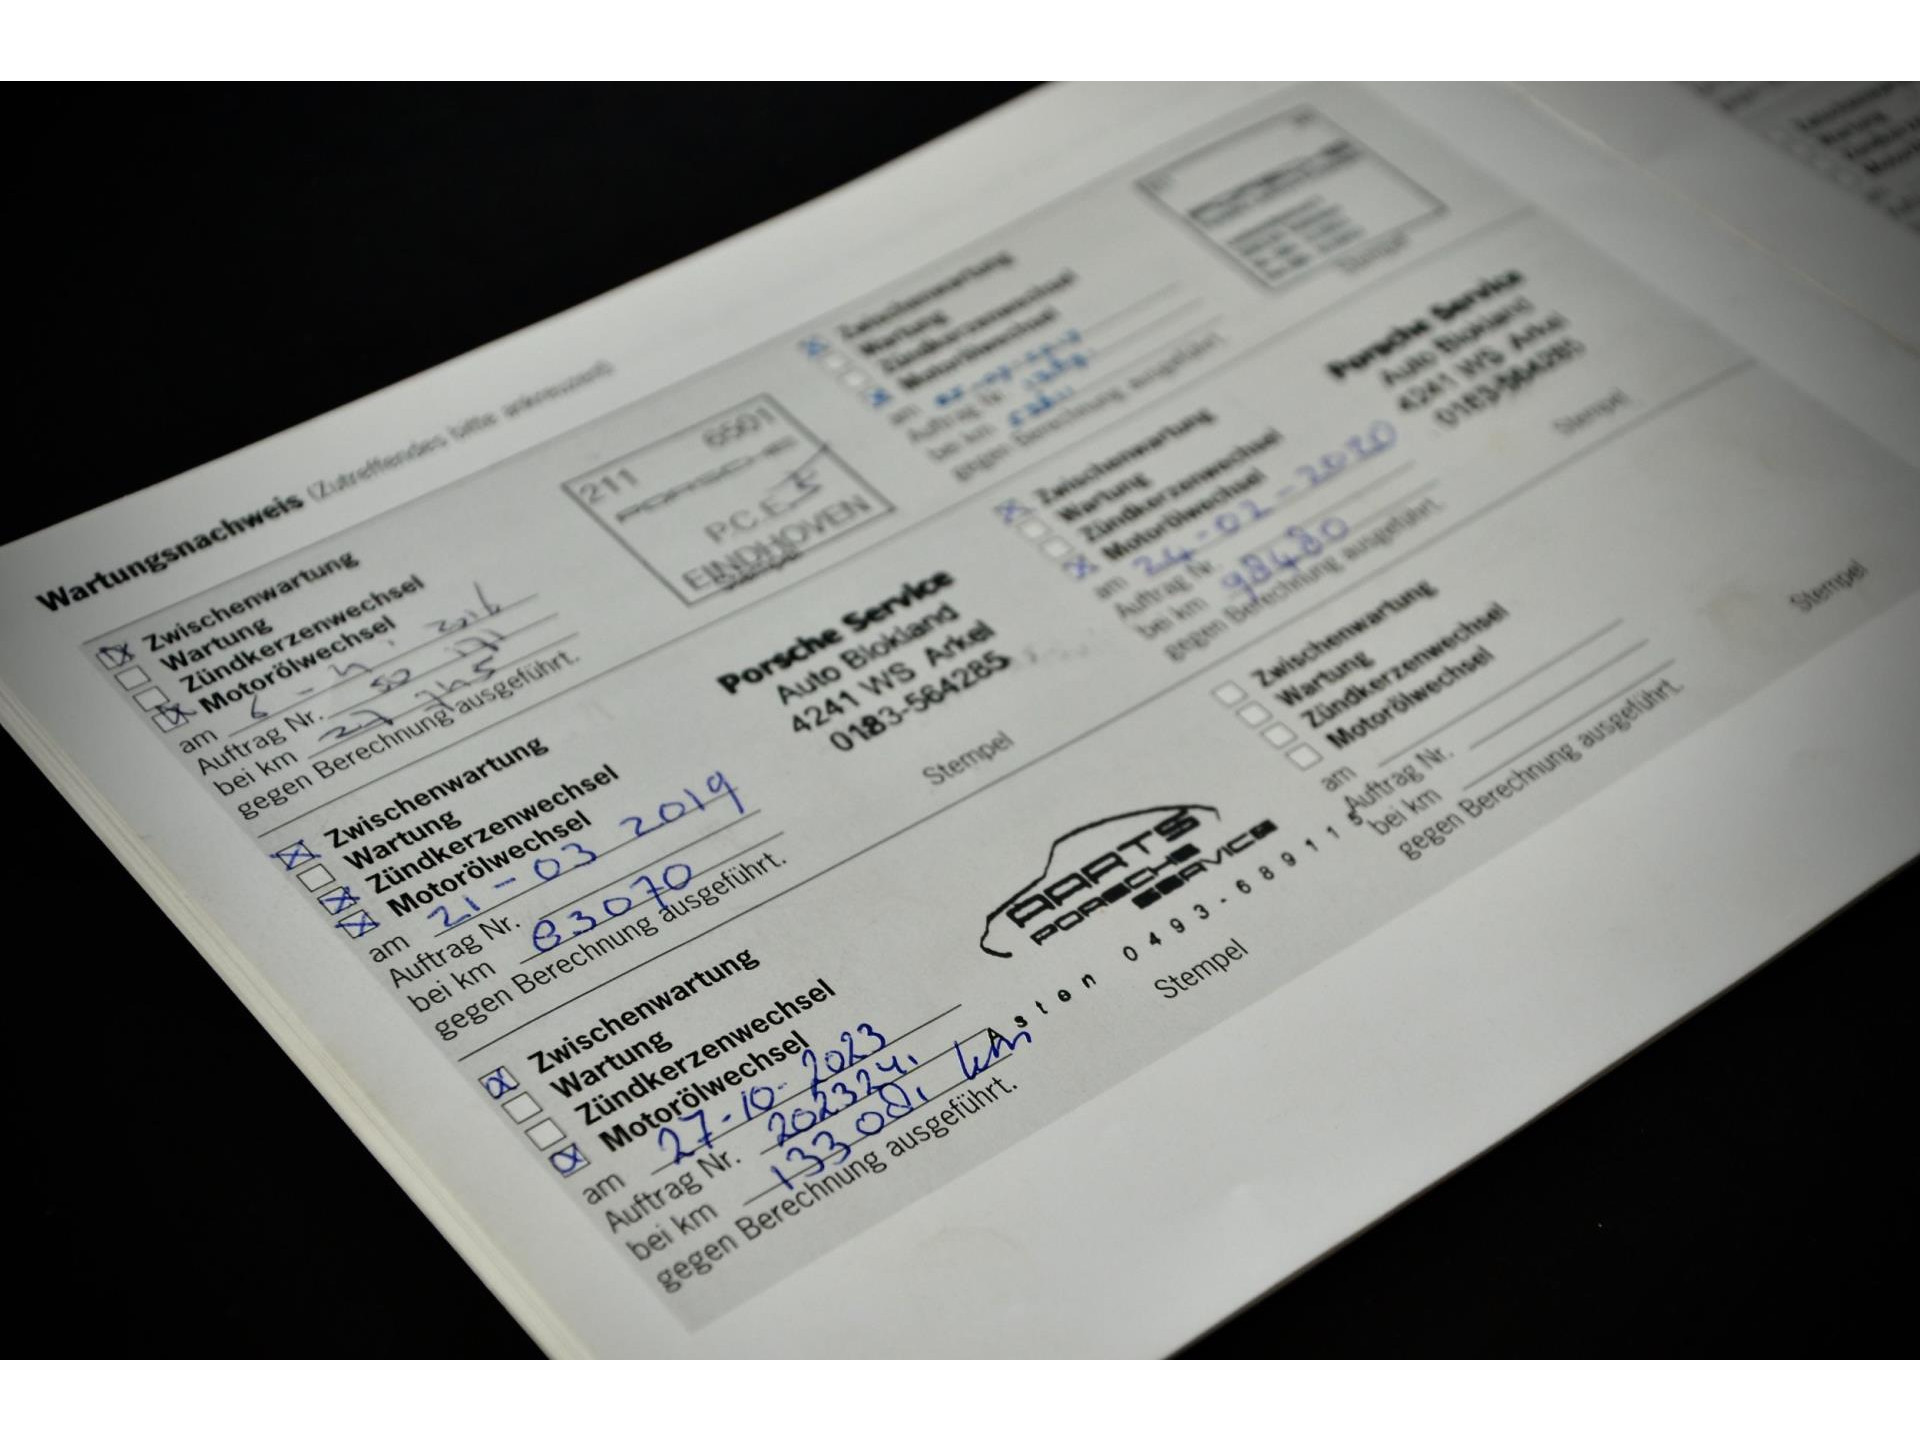 Wartungsnachweis (Zutreffendes bitte ankreuzen)
Zwischenwartung
Wartung
Zündkerzenwechsel
Motorölwechsel
am
Auftrag Nr.
bei km
gegen Berechnung ausgeführt.
211 6501
PORSCHE
P.C.E
EINDHOVEN
Stempel
Zwischenwartung
Wartung
Zündkerzenwechsel
Motorölwechsel
am 21-03 2019
Auftrag Nr.
bei km 83070
gegen Berechnung ausgeführt.
Porsche Service
Auto Blokland
4241 WS Arkel
0183-564285
Stempel
Zwischenwartung
Wartung
Zündkerzenwechsel
Motorölwechsel
am 27-10-2023
Auftrag Nr. 2023241
bei km 133081 km
gegen Berechnung ausgeführt.
AARTS
PORSCHE
SERVICE
Asten 0493-689115
Stempel
Zwischenwartung
Wartung
Zündkerzenwechsel
Motorölwechsel
am
Auftrag Nr.
bei km
gegen Berechnung ausgeführt.
Stempel
Zwischenwartung
Wartung
Zündkerzenwechsel
Motorölwechsel
am 24-02-2020
Auftrag Nr.
bei km 98480
gegen Berechnung ausgeführt.
Porsche Service
Auto Blokland
4241 WS Arkel
0183-564285
Stempel
Zwischenwartung
Wartung
Zündkerzenwechsel
Motorölwechsel
am
Auftrag Nr.
bei km
gegen Berechnung ausgeführt.
Stempel